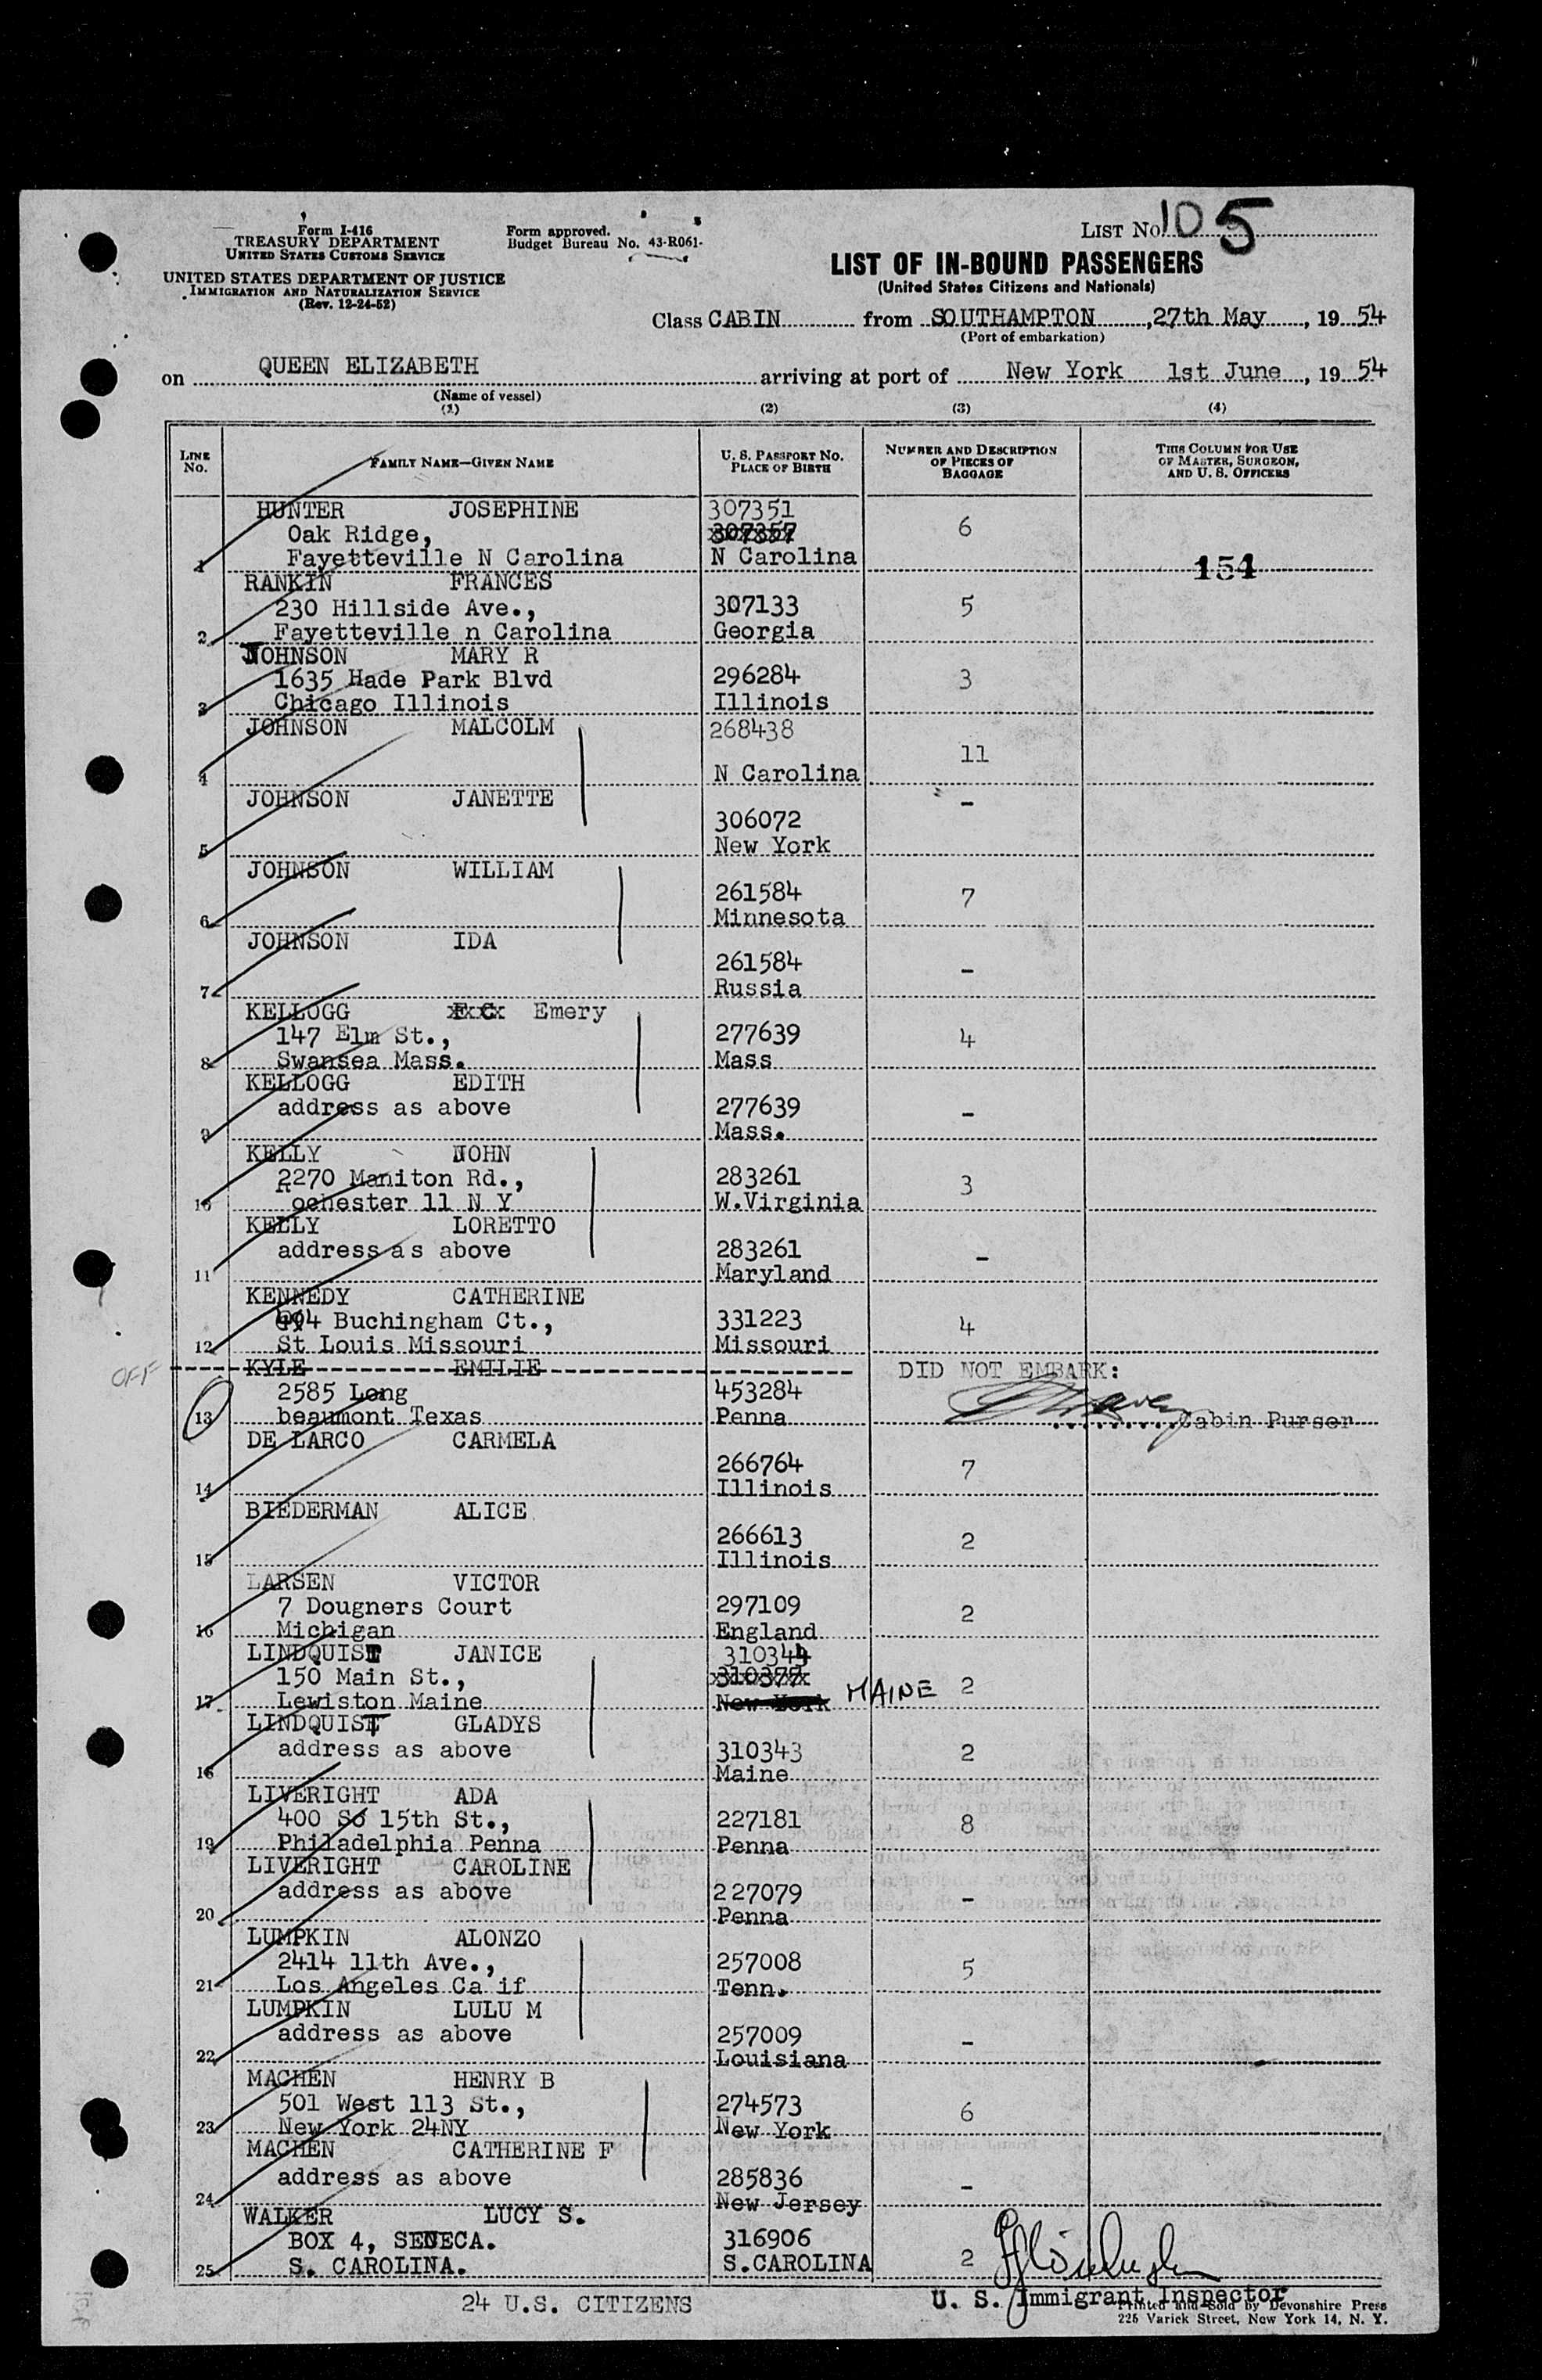 Form I-416
TREASURY DEPARTMENT
UNITED STATES CUSTOMS SERVICE
UNITED STATES DEPARTMENT OF JUSTICE
IMMIGRATION AND NATURALIZATION SERVICE
(Rev. 12-24-52)
Form approved.
Budget Bureau No. 43-R061-
LIST No. 105
LIST OF IN-BOUND PASSENGERS
(United States Citizens and Nationals)
Class CABIN from SOUTHAMPTON, 27th May, 19 54
(Port of embarkation)
on QUEEN ELIZABETH arriving at port of New York 1st June, 19 54
(Name of vessel)
(1) (2) (3) (4)
LINE NO. FAMILY NAME—GIVEN NAME U. S. PASSPORT NO. PLACE OF BIRTH NUMBER AND DESCRIPTION OF PIECES OF BAGGAGE THIS COLUMN FOR USE OF MASTER, SURGEON, AND U. S. OFFICERS
HUNTER JOSEPHINE 307351
Oak Ridge, 307357 6
1 Fayetteville N Carolina N Carolina 154
RANKIN FRANCES
230 Hillside Ave., 307133 5
2 Fayetteville n Carolina Georgia
JOHNSON MARY R
1635 Hade Park Blvd 296284 3
3 Chicago Illinois Illinois
JOHNSON MALCOLM 268438
11
4 N Carolina
JOHNSON JANETTE -
306072
5 New York
JOHNSON WILLIAM
261584 7
6 Minnesota
JOHNSON IDA
261584 -
7 Russia
KELLOGG E C Emery
147 Elm St., 277639 4
8 Swansea Mass. Mass
KELLOGG EDITH
address as above 277639 -
9 Mass.
KELLY JOHN
2270 Maniton Rd., 283261 3
10 Rochester 11 N Y W.Virginia
KELLY LORETTO
address as above 283261 -
11 Maryland
KENNEDY CATHERINE
Buchingham Ct., 331223 4
12 St Louis Missouri Missouri
OFF KYLE EMILIE DID NOT EMBARK:
2585 Long 453284
13 beaumont Texas Penna Cabin Purser
DE LARCO CARMELA
266764 7
14 Illinois
BIEDERMAN ALICE
266613 2
15 Illinois
LARSEN VICTOR
7 Dougners Court 297109 2
16 Michigan England
LINDQUIST JANICE 310344
150 Main St., 310377
17 Lewiston Maine New York MAINE 2
LINDQUIST GLADYS
address as above 310343 2
18 Maine
LIVERIGHT ADA
400 So 15th St., 227181 8
19 Philadelphia Penna Penna
LIVERIGHT CAROLINE
address as above 227079 -
20 Penna
LUMPKIN ALONZO
2414 11th Ave., 257008 5
21 Los Angeles Ca if Tenn.
LUMPKIN LULU M
address as above 257009 -
22 Louisiana
MACHEN HENRY B
501 West 113 St., 274573 6
23 New York 24NY New York
MACHEN CATHERINE F
address as above 285836 -
24 New Jersey
WALKER LUCY S.
BOX 4, SENECA. 316906
25 S. CAROLINA. S.CAROLINA 2
24 U.S. CITIZENS U. S. Immigrant Inspector
Printed and Sold by Devonshire Press
225 Varick Street, New York 14, N. Y.